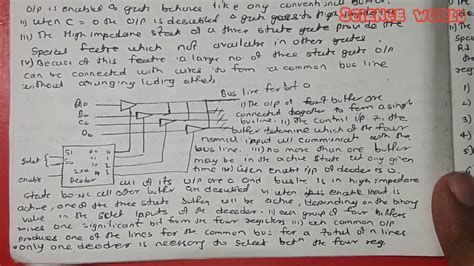 O/P is enabled & gate behaves like any conventional buffer.
ii) When C = 0 the O/P is disabled & gate goes to high
SCIENCE WORLD
iii) The High impedance state of a three state gate provide the
Special featre which not available in other gates
iv) Because of this featre a large no of three state gate O/P
can be connected with wires to form a common bus line
without
Bus line for bit 0
A0
B0
C0
D0
i) The O/P of four buffer are
connected together to form a single
bus line. ii) The control I/P to the
buffer determine which of the four
normal input will communicate with the
bus line. iii) no more than one buffer
may be in the active state at any given
time iv) when enable i/p of decoder is 0
Select
S1
S0
Enable
2x4
Decoder
0
1
2
3
all of its O/P are 0 and bus line is in high impedance
state because all other buffer are disabled v) when the enable input is
active, one of the three state buffer will be active, depending on the binary
value in the select inputs of the decoder. vi) each group of four buffers
one significant bit from the four registers vii) each common O/P
produces one of the lines for the common bus for a total of n lines.
• only one decoder is necessary to select betn the four reg.